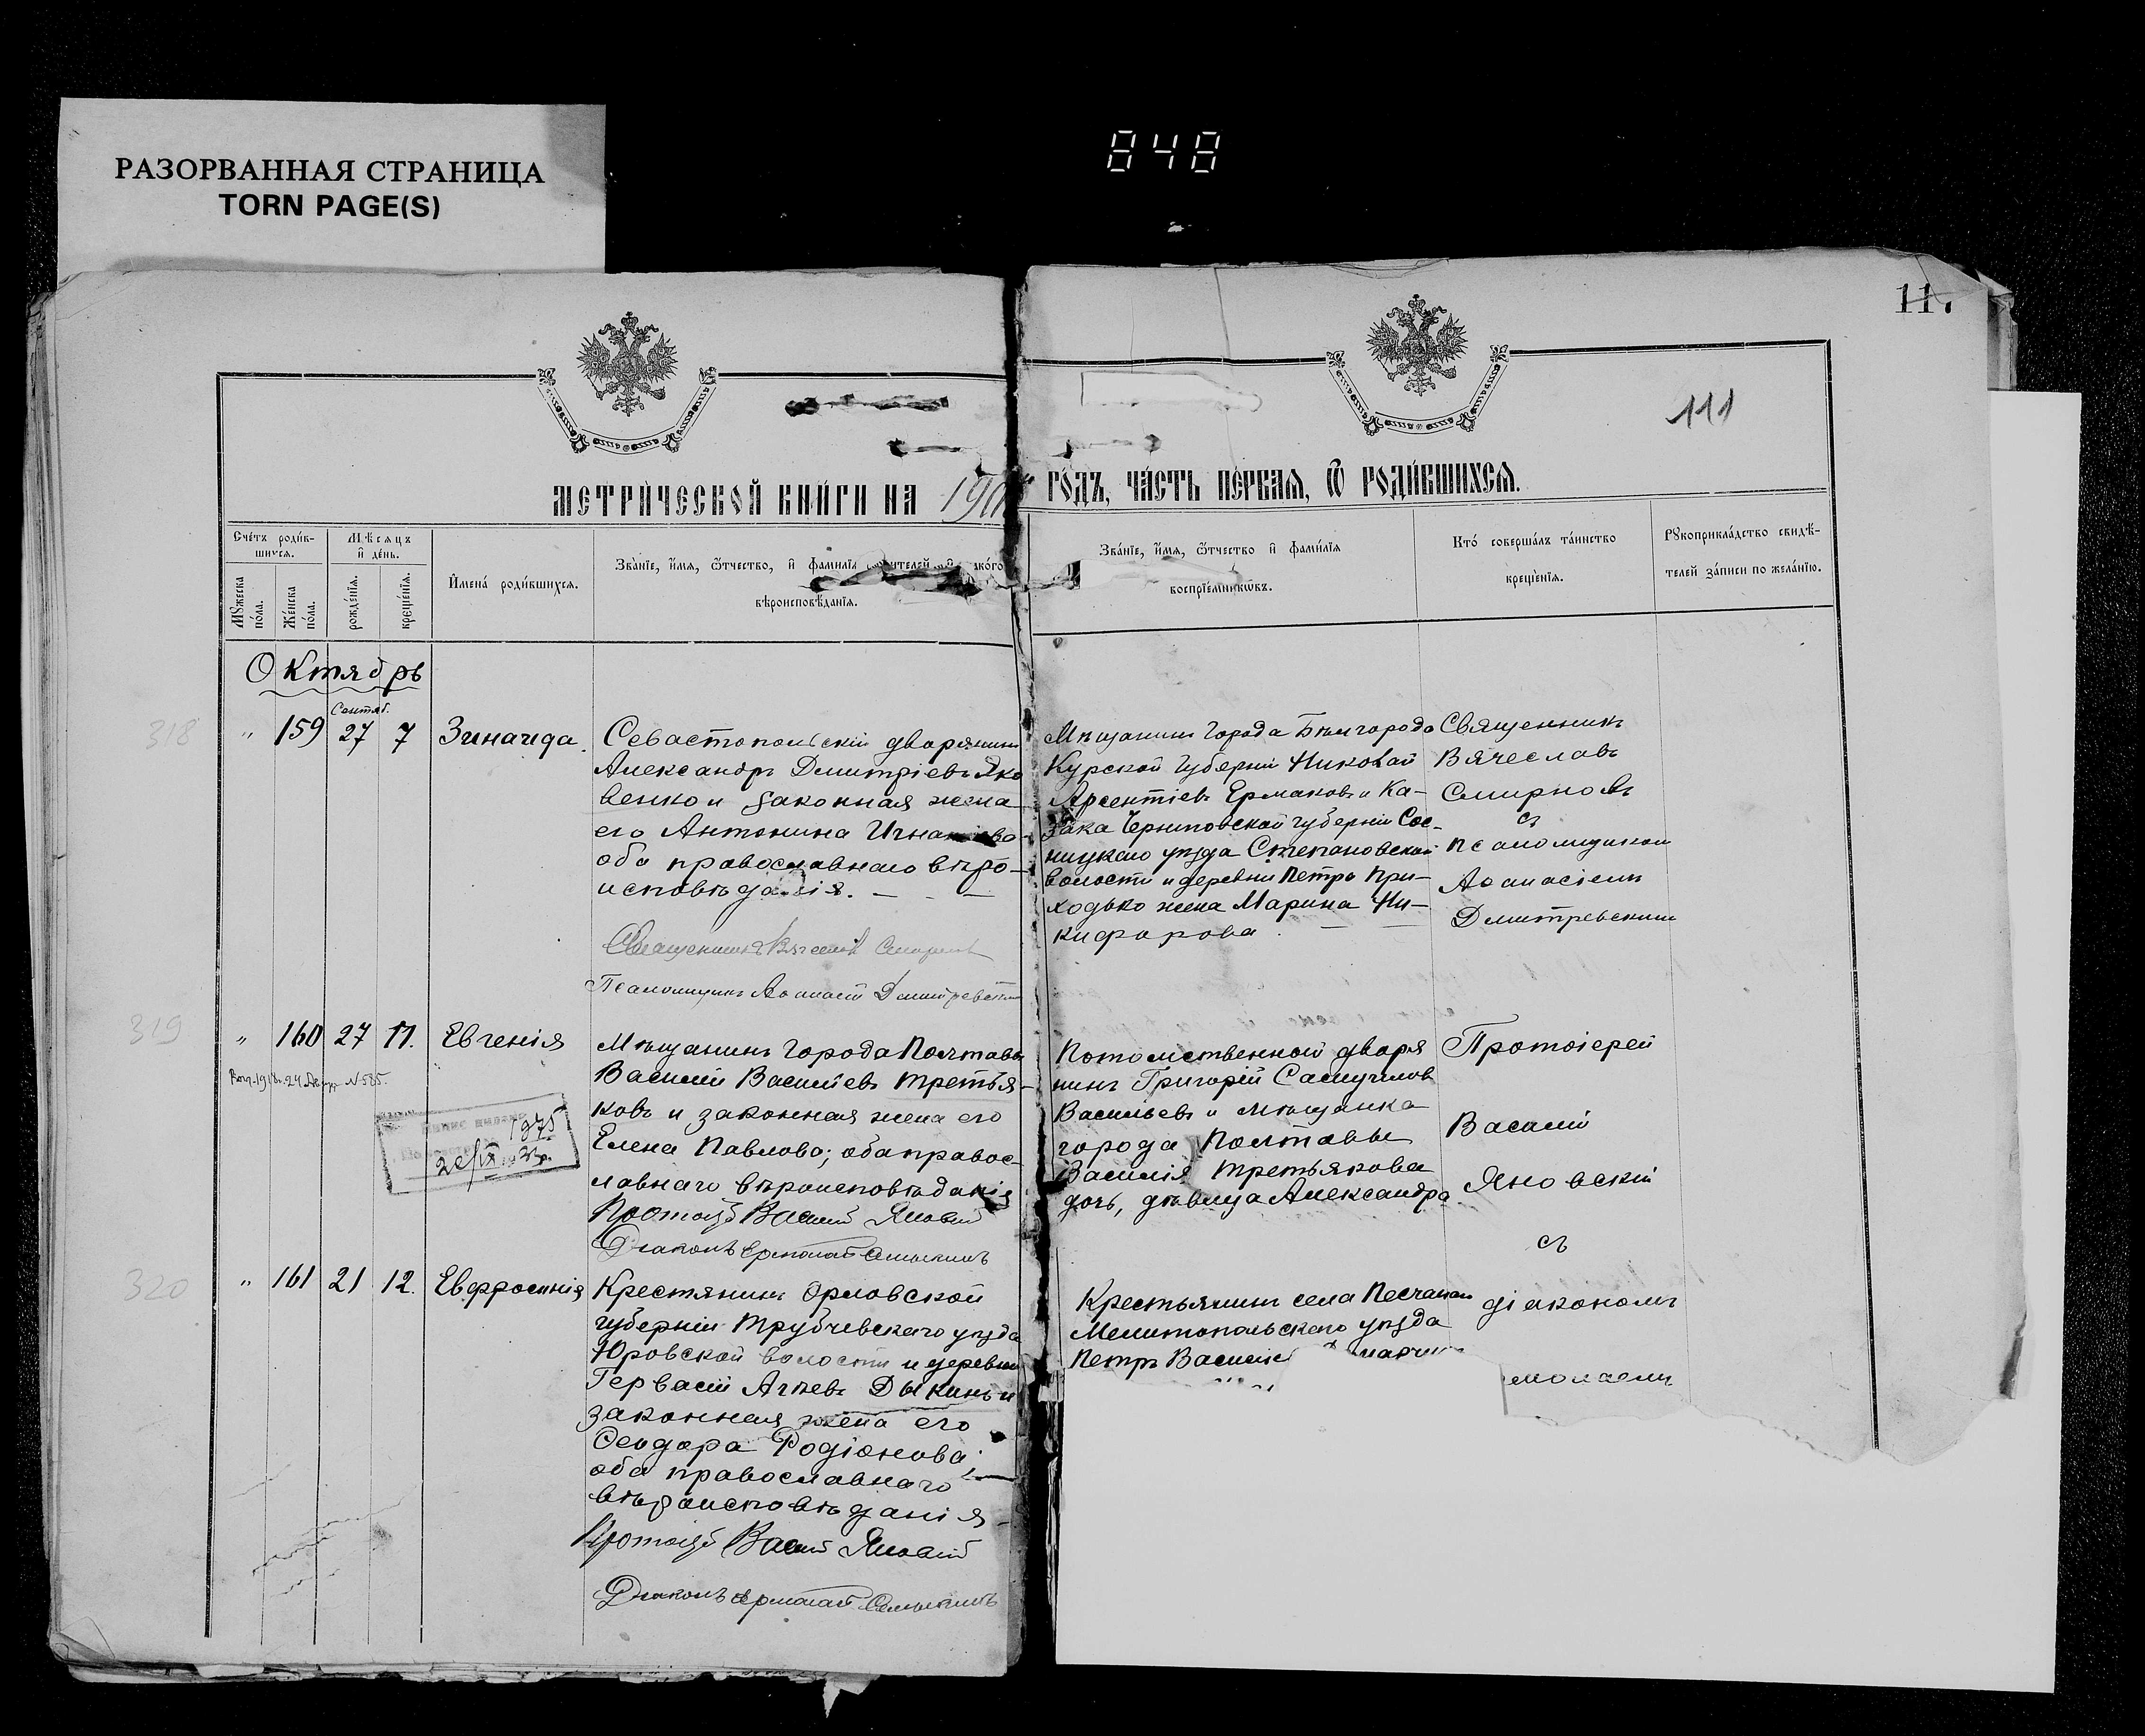 РАЗОРВАННАЯ СТРАНИЦА
TORN PAGE(S)
848
11
111
МЕТРИ́ЧЕСКОЙ КНИ́ГИ НА 190
ГО́ДЪ, ЧА́СТЬ ПЕ́РВАѦ, Ѿ РОДИ́ВШИХСѦ.
Сче́тъ роди́в-
шихсѧ.
Мѣ́сѧцъ
и҆ де́нь.
Мꙋ́жеска
по́ла.
Же́нска
по́ла.
рожде́нїѧ.
креще́нїѧ.
И҆мена̀ роди́вшихсѧ.
Зва́нїе, и҆́мѧ, ѻ҆́тчество, и҆ фамилїѧ
вѣроисповѣ́данїѧ.
Зва́нїе, и҆́мѧ, ѻ҆́тчество и҆ фами́лїѧ
воспрїе́мникѡвъ.
Кто̀ соверша́лъ та́инство
креще́нїѧ.
Рꙋкоприкла́дство свидѣ́-
телей за́писи по жела́нїю.
Октябрь
Сентяб.
318 " 159 27 7 Зинаида.
Севастопольскій дворянинъ
Александръ Димитріевъ Яко
венко и законная жена
его Антонина Игнатіева
оба православнаго вѣро-
исповѣданія.
Священникъ Вячеславъ Смирновъ
Псаломщикъ Аѳанасій Дмитревскій
Мѣщанинъ города Бѣлгорода
Курской губерніи Николай
Арсентіевъ Ермаковъ и Ка-
зака Черниговской губерніи Сос-
ницкаго уѣзда Степановской
волости и деревни Петра При-
ходько жена Марина Ни-
кифорова.
Священникъ
Вячеславъ
Смирновъ
съ
псаломщикомъ
Аѳанасіемъ
Дмитревскимъ
319 " 160 27 11. Евгенія
N 535.
1975
Мѣщанинъ города Полтавы
Василій Васильевъ Третья-
ковъ и законная жена его
Елена Павлова; оба правос-
лавнаго вѣроисповѣданія
Протоіер Василій Яновскій
Діаконъ Ермолай
Потомственный дворя
нинъ Григорій Самуиловъ
Васильевъ и мѣщанка
города Полтавы
Василія Третьякова
дочь, дѣвица Александра
Протоіерей
Василій
Яновскій
съ
320 " 161 21 12. Евфросинія
Крестянинъ Орловской
губерніи Трубчевскаго уѣзда
Юровской волости и деревни
Гервасій Агѣевъ Дыкинъ и
законная жена его
Ѳеодора Родіонова;
оба православнаго
вѣроисповѣданія
Протоіер Василій Яновскій
Діаконъ Ермолай
Крестьянинъ села Песчанаго
Мелитопольскаго уѣзда
Петръ Василье
діакономъ
рмолаемъ